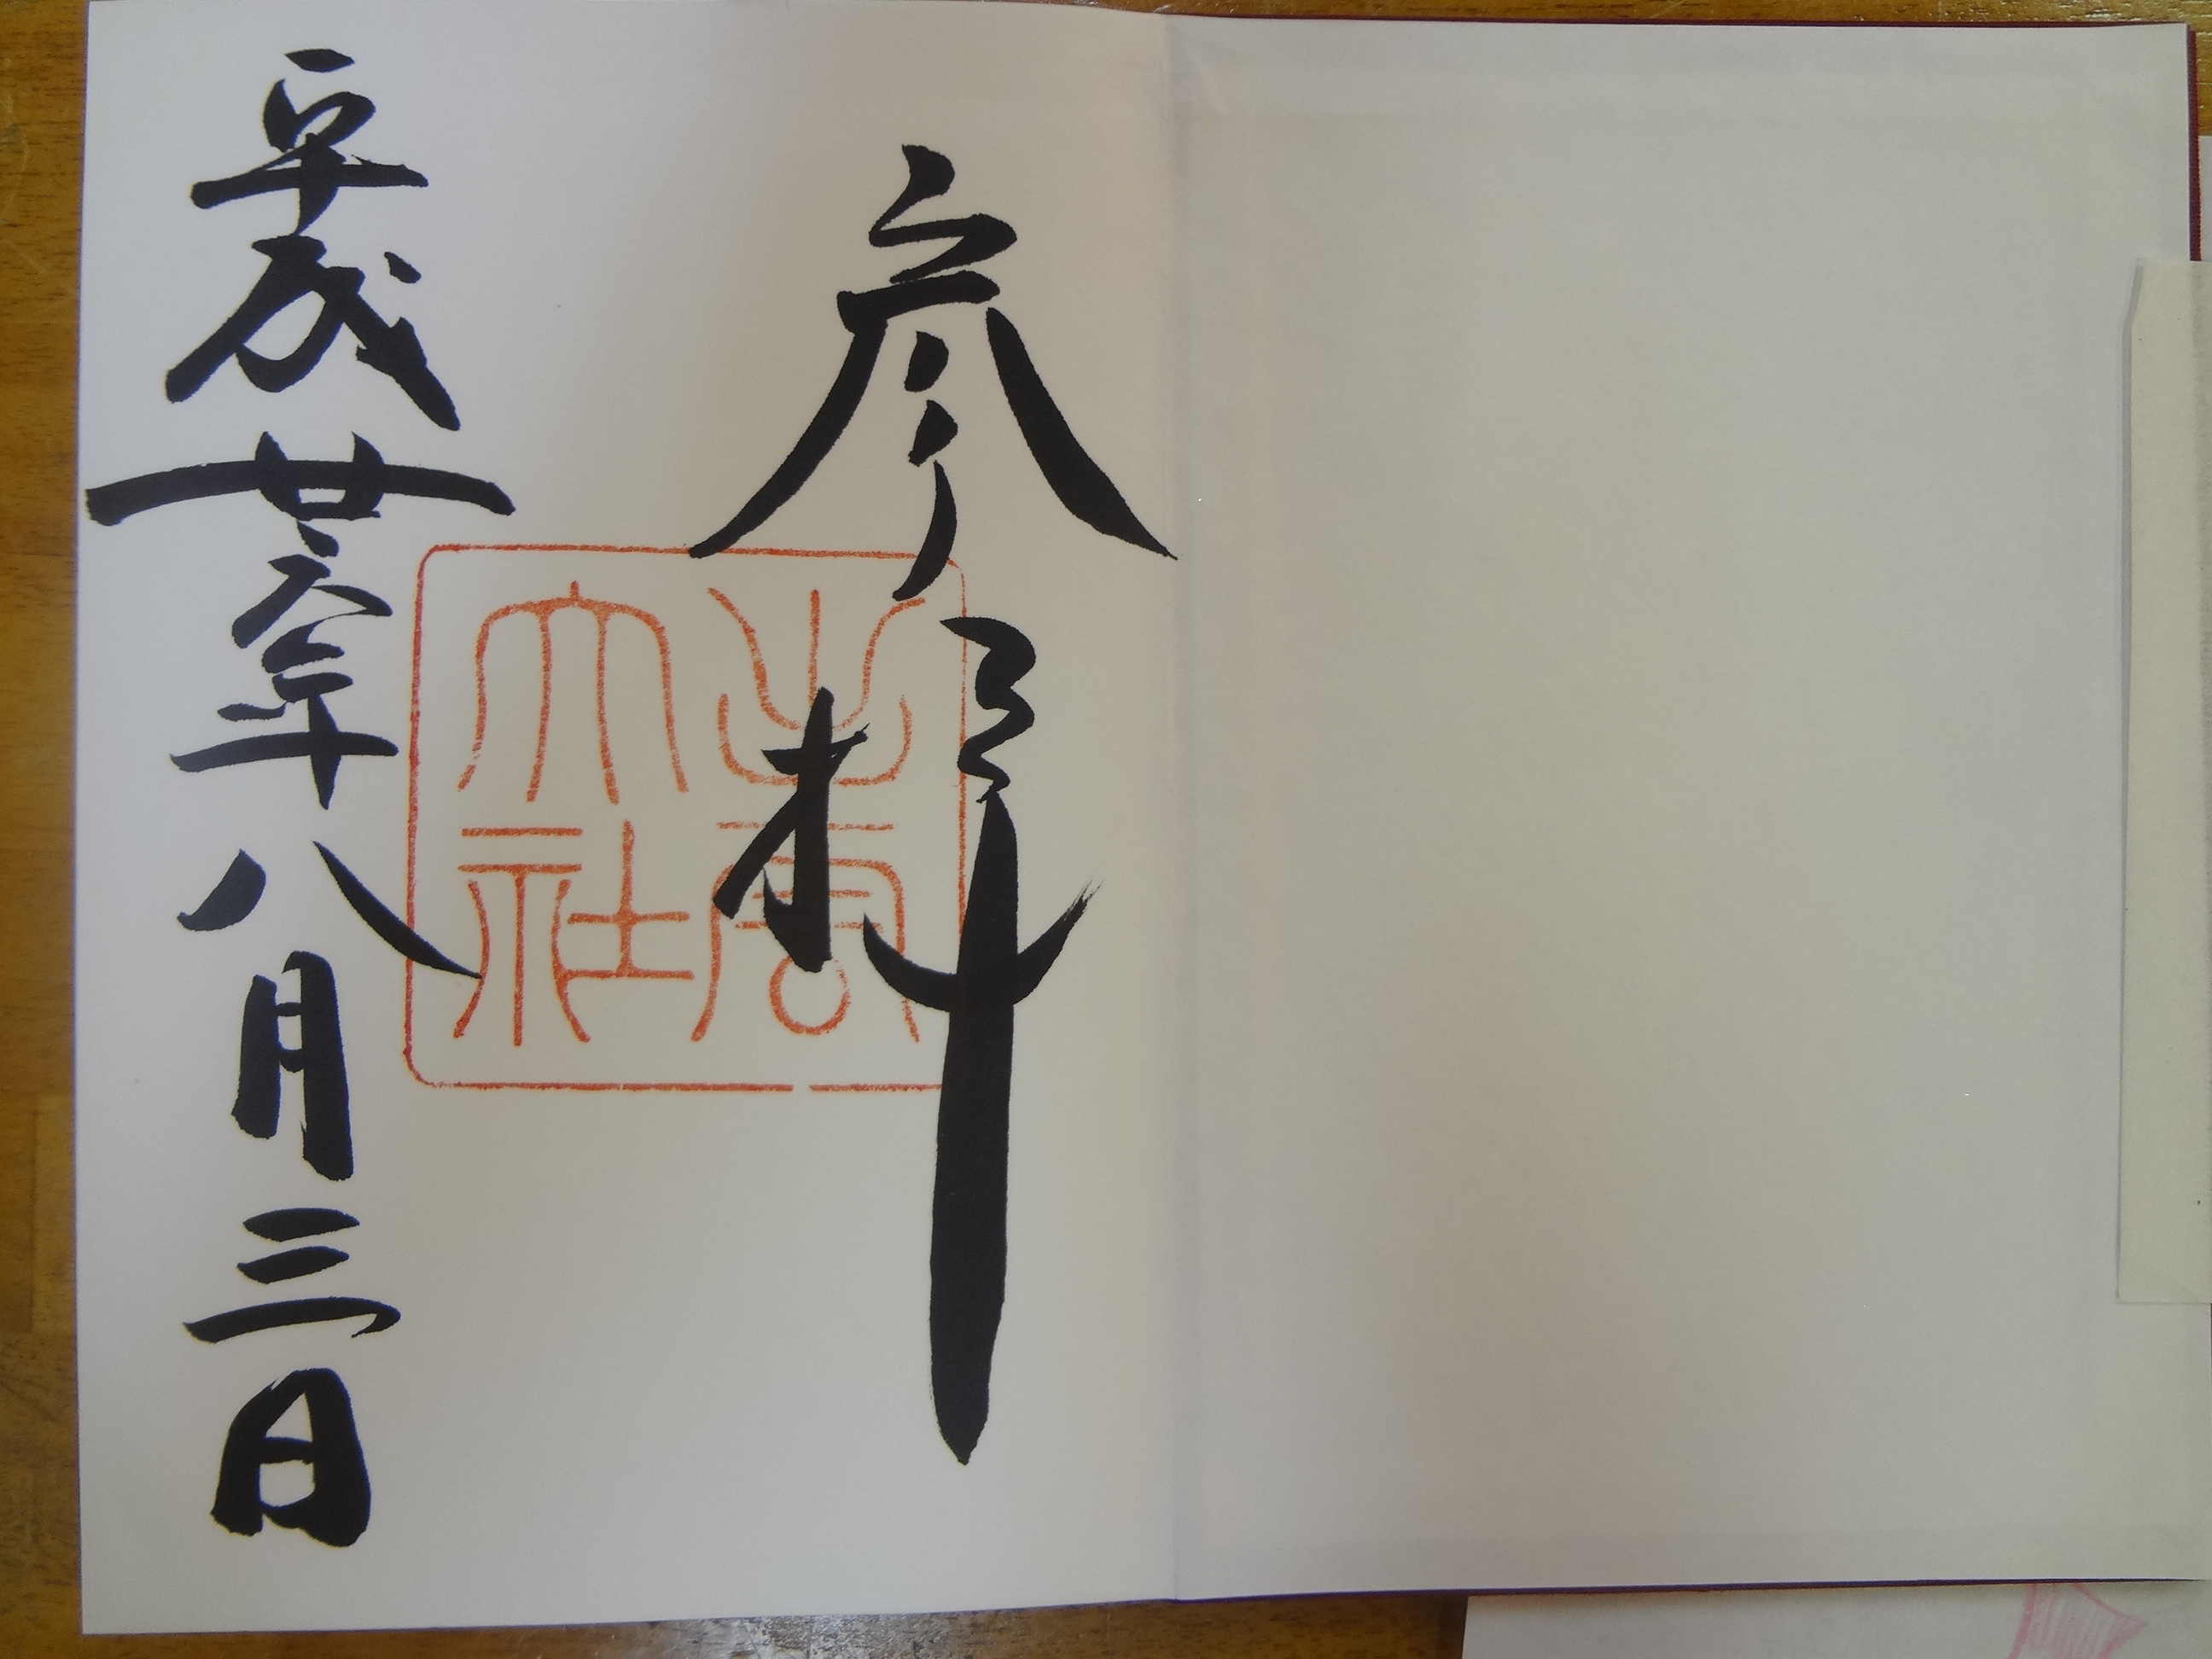 参拝
出雲
大社
平成廿六年八月三日